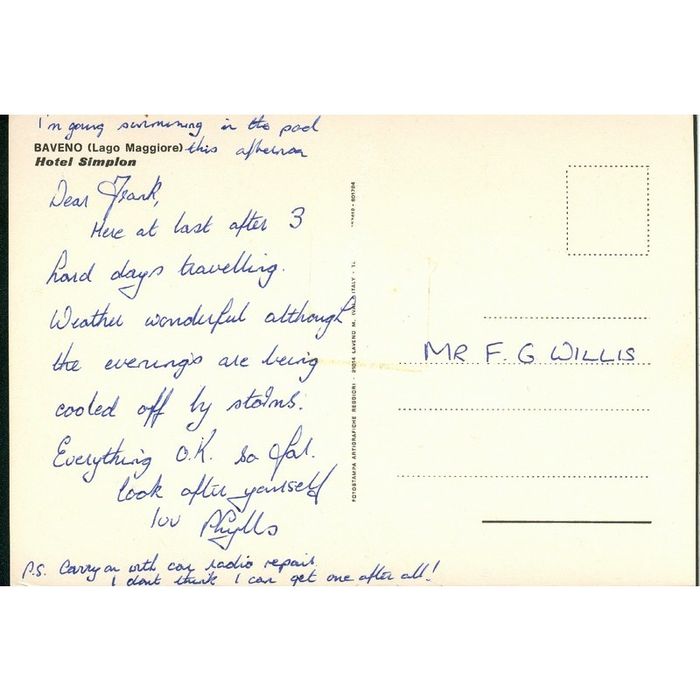 I'm going swimming in the pool
this afternoon
BAVENO (Lago Maggiore)
Hotel Simplon
Dear Frank,
Here at last after 3
hard days travelling.
Weather wonderful although
the evenings are being
cooled off by storms.
Everything O.K. so far.
look after yourself
luv Phylls
P.S. Carry on with car radio repair.
I dont think I can get one after all!
FOTOSTAMPA ARTIGRAFICHE REGGIORI - 21014 LAVENO M. ITALY
MR F. G WILLIS